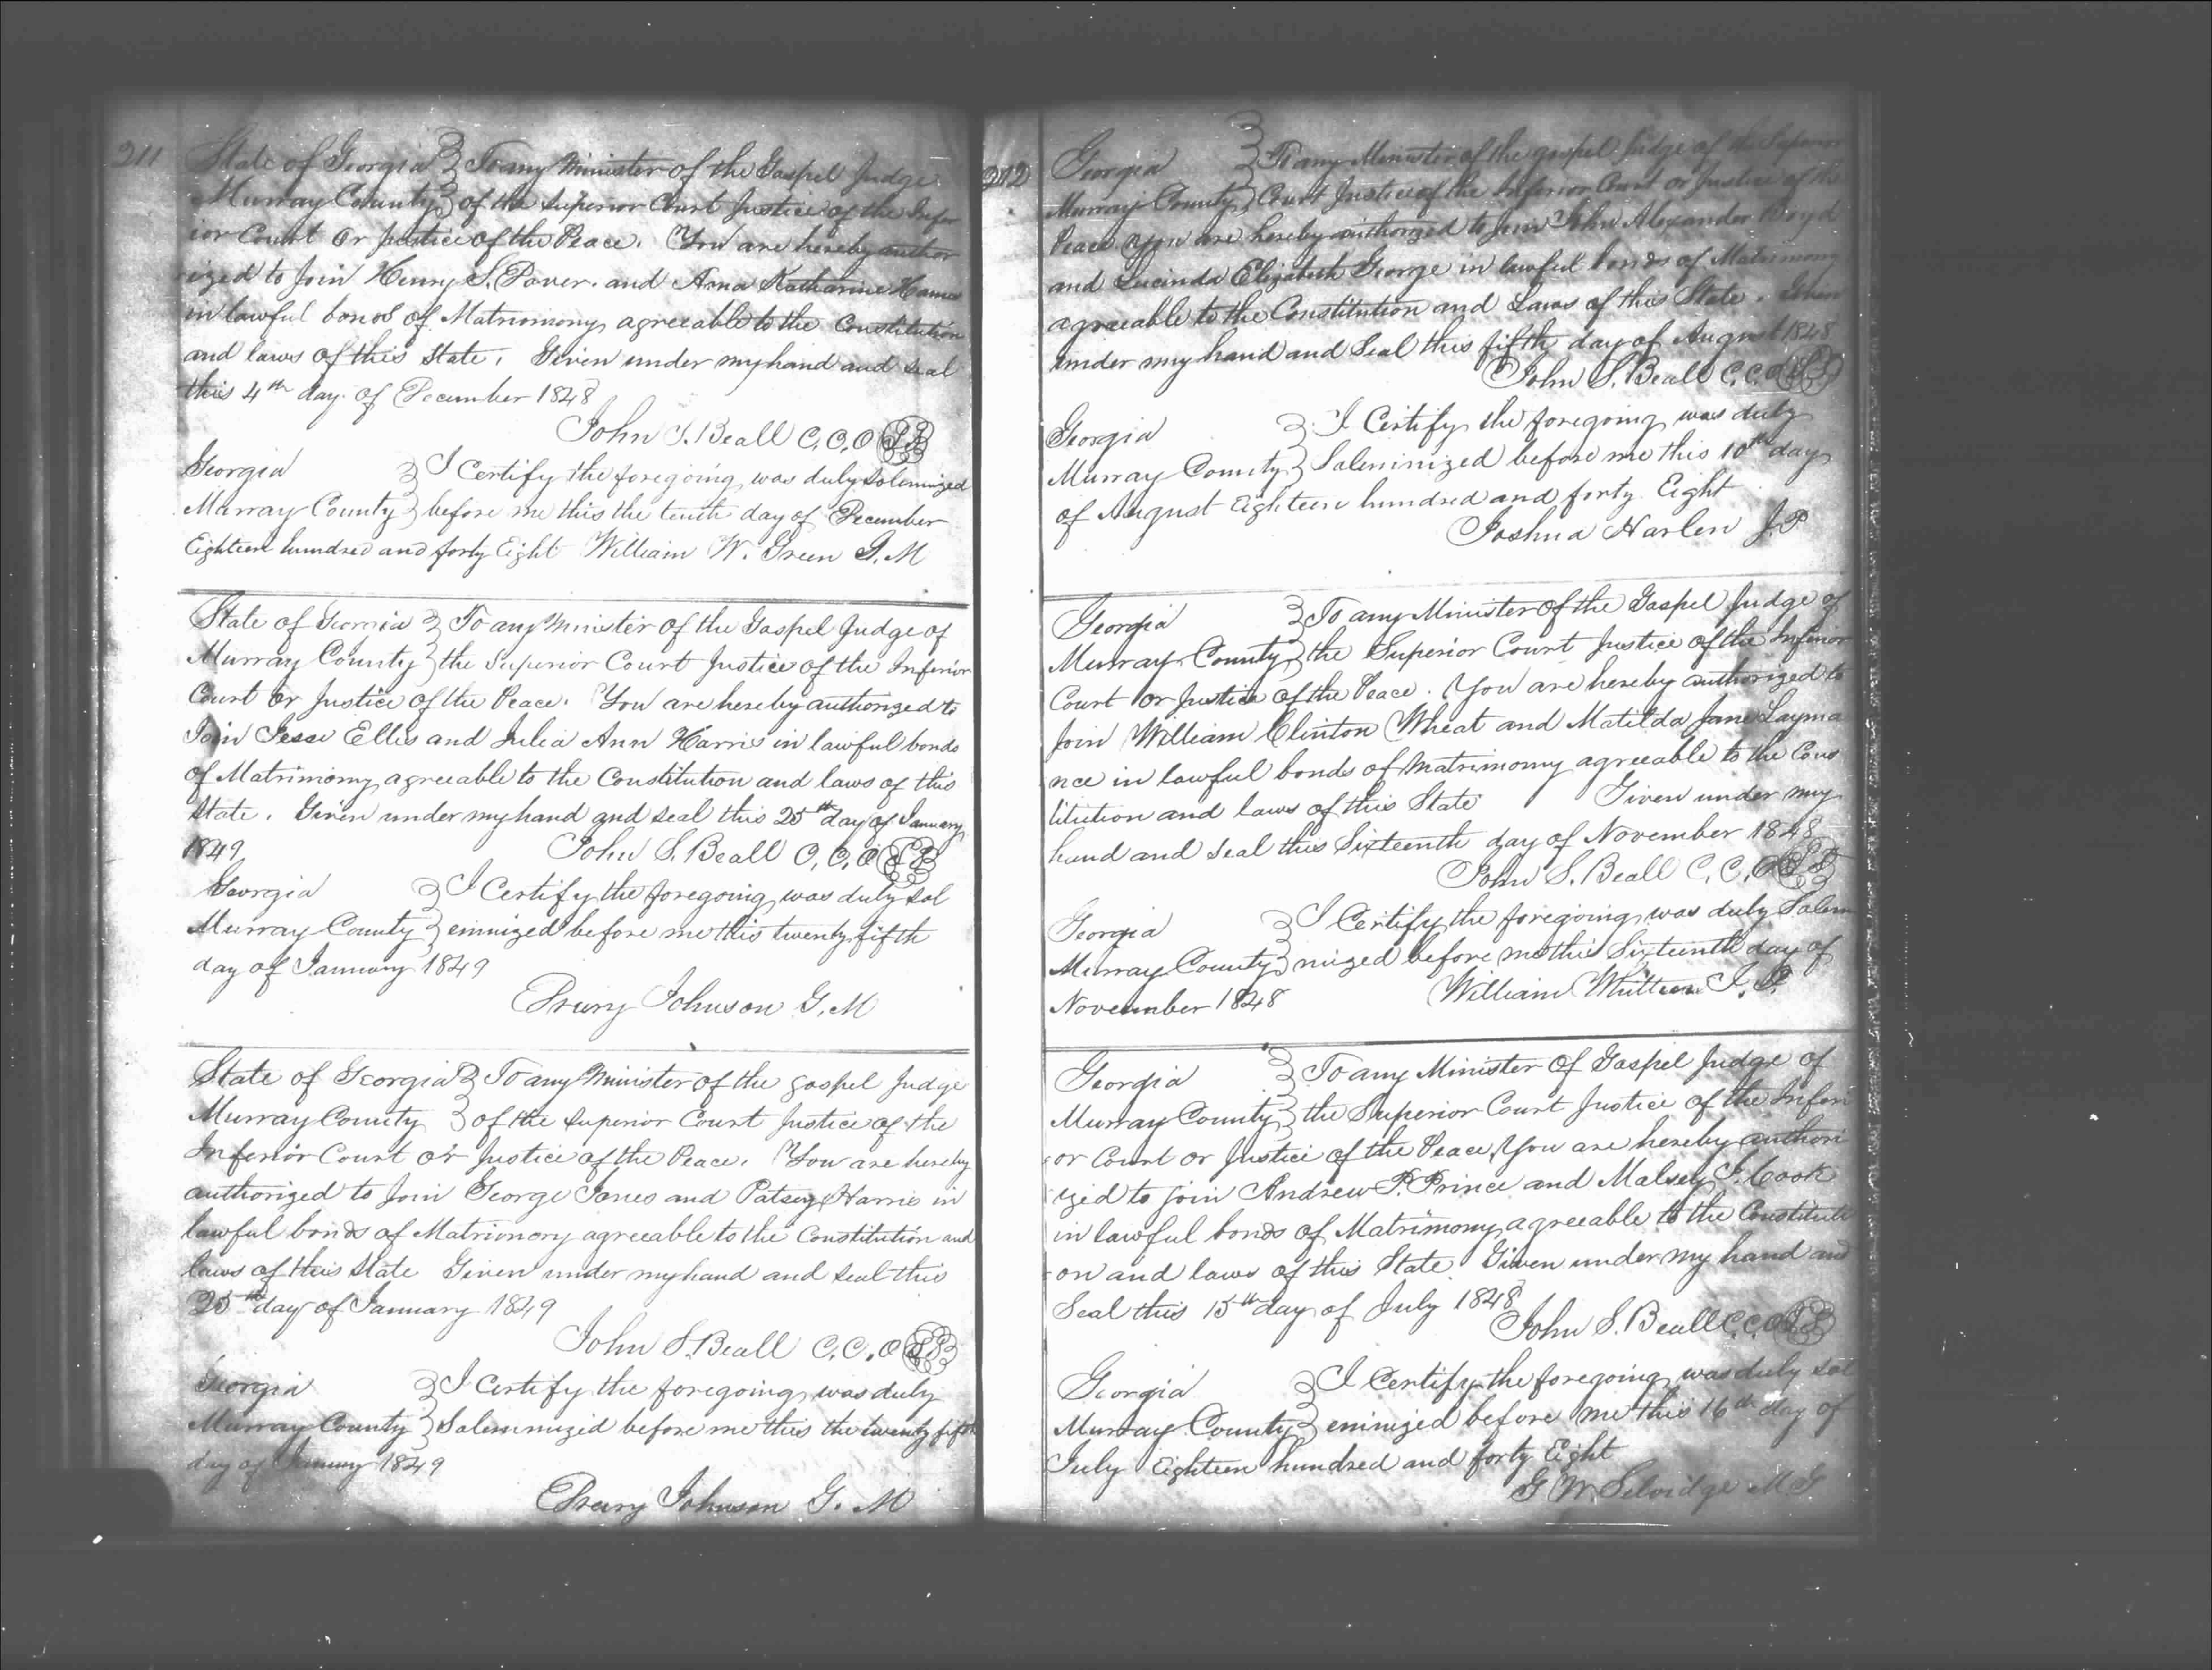 211
State of Georgia } To any Minister of the Gospel Judge
Murray County } of the Superior Court Justice of the Infer
ior Court or Justice of the Peace. You are hereby author
ized to Join Henry S. and Anna Katharine
in lawful bonds of Matrimony agreeable to the Constitution
and laws of this State. Given under my hand and seal
this 4th day of December 1848
John S. Beall C.C.O
Georgia } I Certify the foregoing was duly Soleminized
Murray County } before me this the tenth day of December
Eighteen hundred and forty Eight William W. Green G.M
State of Georgia } To any Minister of the Gospel Judge of
Murray County } the Superior Court Justice of the Inferior
Court or Justice of the Peace. You are hereby authorized to
Join Jesse Ellis and Julia Ann Harris in lawful bonds
of Matrimony agreeable to the Constitution and laws of this
State. Given under my hand and seal this 25th day of January
1849 John S. Beall C.C.O
Georgia } I Certify the foregoing was duly sol
Murray County } eminized before me this twenty fifth
day of January 1849
Johnson G.M
State of Georgia } To any Minister of the gospel Judge
Murray County } of the Superior Court Justice of the
Inferior Court or Justice of the Peace. You are hereby
authorized to Join George Jones and Patsey Harris in
lawful bonds of Matrimony agreeable to the Constitution and
laws of this State Given under my hand and seal this
25th day of January 1849
John S. Beall C.C.O
Georgia } I Certify the foregoing was duly
Murray County } Soleminized before me this the twenty fifth
day of January 1849
Johnson G. M
212
Georgia } To any Minister of the gospel Judge of the Superior
Murray County } Court Justice of the Inferior Court or Justice of the
Peace You are hereby authorized to Join John Alexander Boyd
and Lucinda Elizabeth George in lawful bonds of Matrimony
agreeable to the Constitution and Laws of this State. Given
under my hand and Seal this fifth day of August 1848
John S. Beall C.C.O
Georgia } I Certify the foregoing was duly
Murray County } Soleminized before me this 10th day
of August Eighteen hundred and forty Eight
Joshua Harlen J.P
Georgia } To any Minister of the Gospel Judge of
Murray County } the Superior Court Justice of the Inferior
Court or Justice of the Peace. You are hereby authorized to
Join William Clinton Wheat and Matilda Jane Layma
nce in lawful bonds of Matrimony agreeable to the Cons
titution and laws of this State Given under my
hand and seal this Sixteenth day of November 1848
John S. Beall C.C.O
Georgia } I Certify the foregoing was duly Solem
Murray County } nized before me this Sixteenth day of
November 1848 William Whitten J.P.
Georgia } To any Minister of Gospel Judge of
Murray County } the Superior Court Justice of the Inferi
or Court or Justice of the Peace, You are hereby authori
zed to join Andrew P. Prince and Malsey J. Cook
in lawful bonds of Matrimony agreeable to the Constituti
on and laws of this State Given under my hand and
Seal this 15th day of July 1848
John S. Beall C.C.O
Georgia } I Certify the foregoing was duly sol
Murray County } eminized before me this 16th day of
July Eighteen hundred and forty Eight
G W Selvidge M G